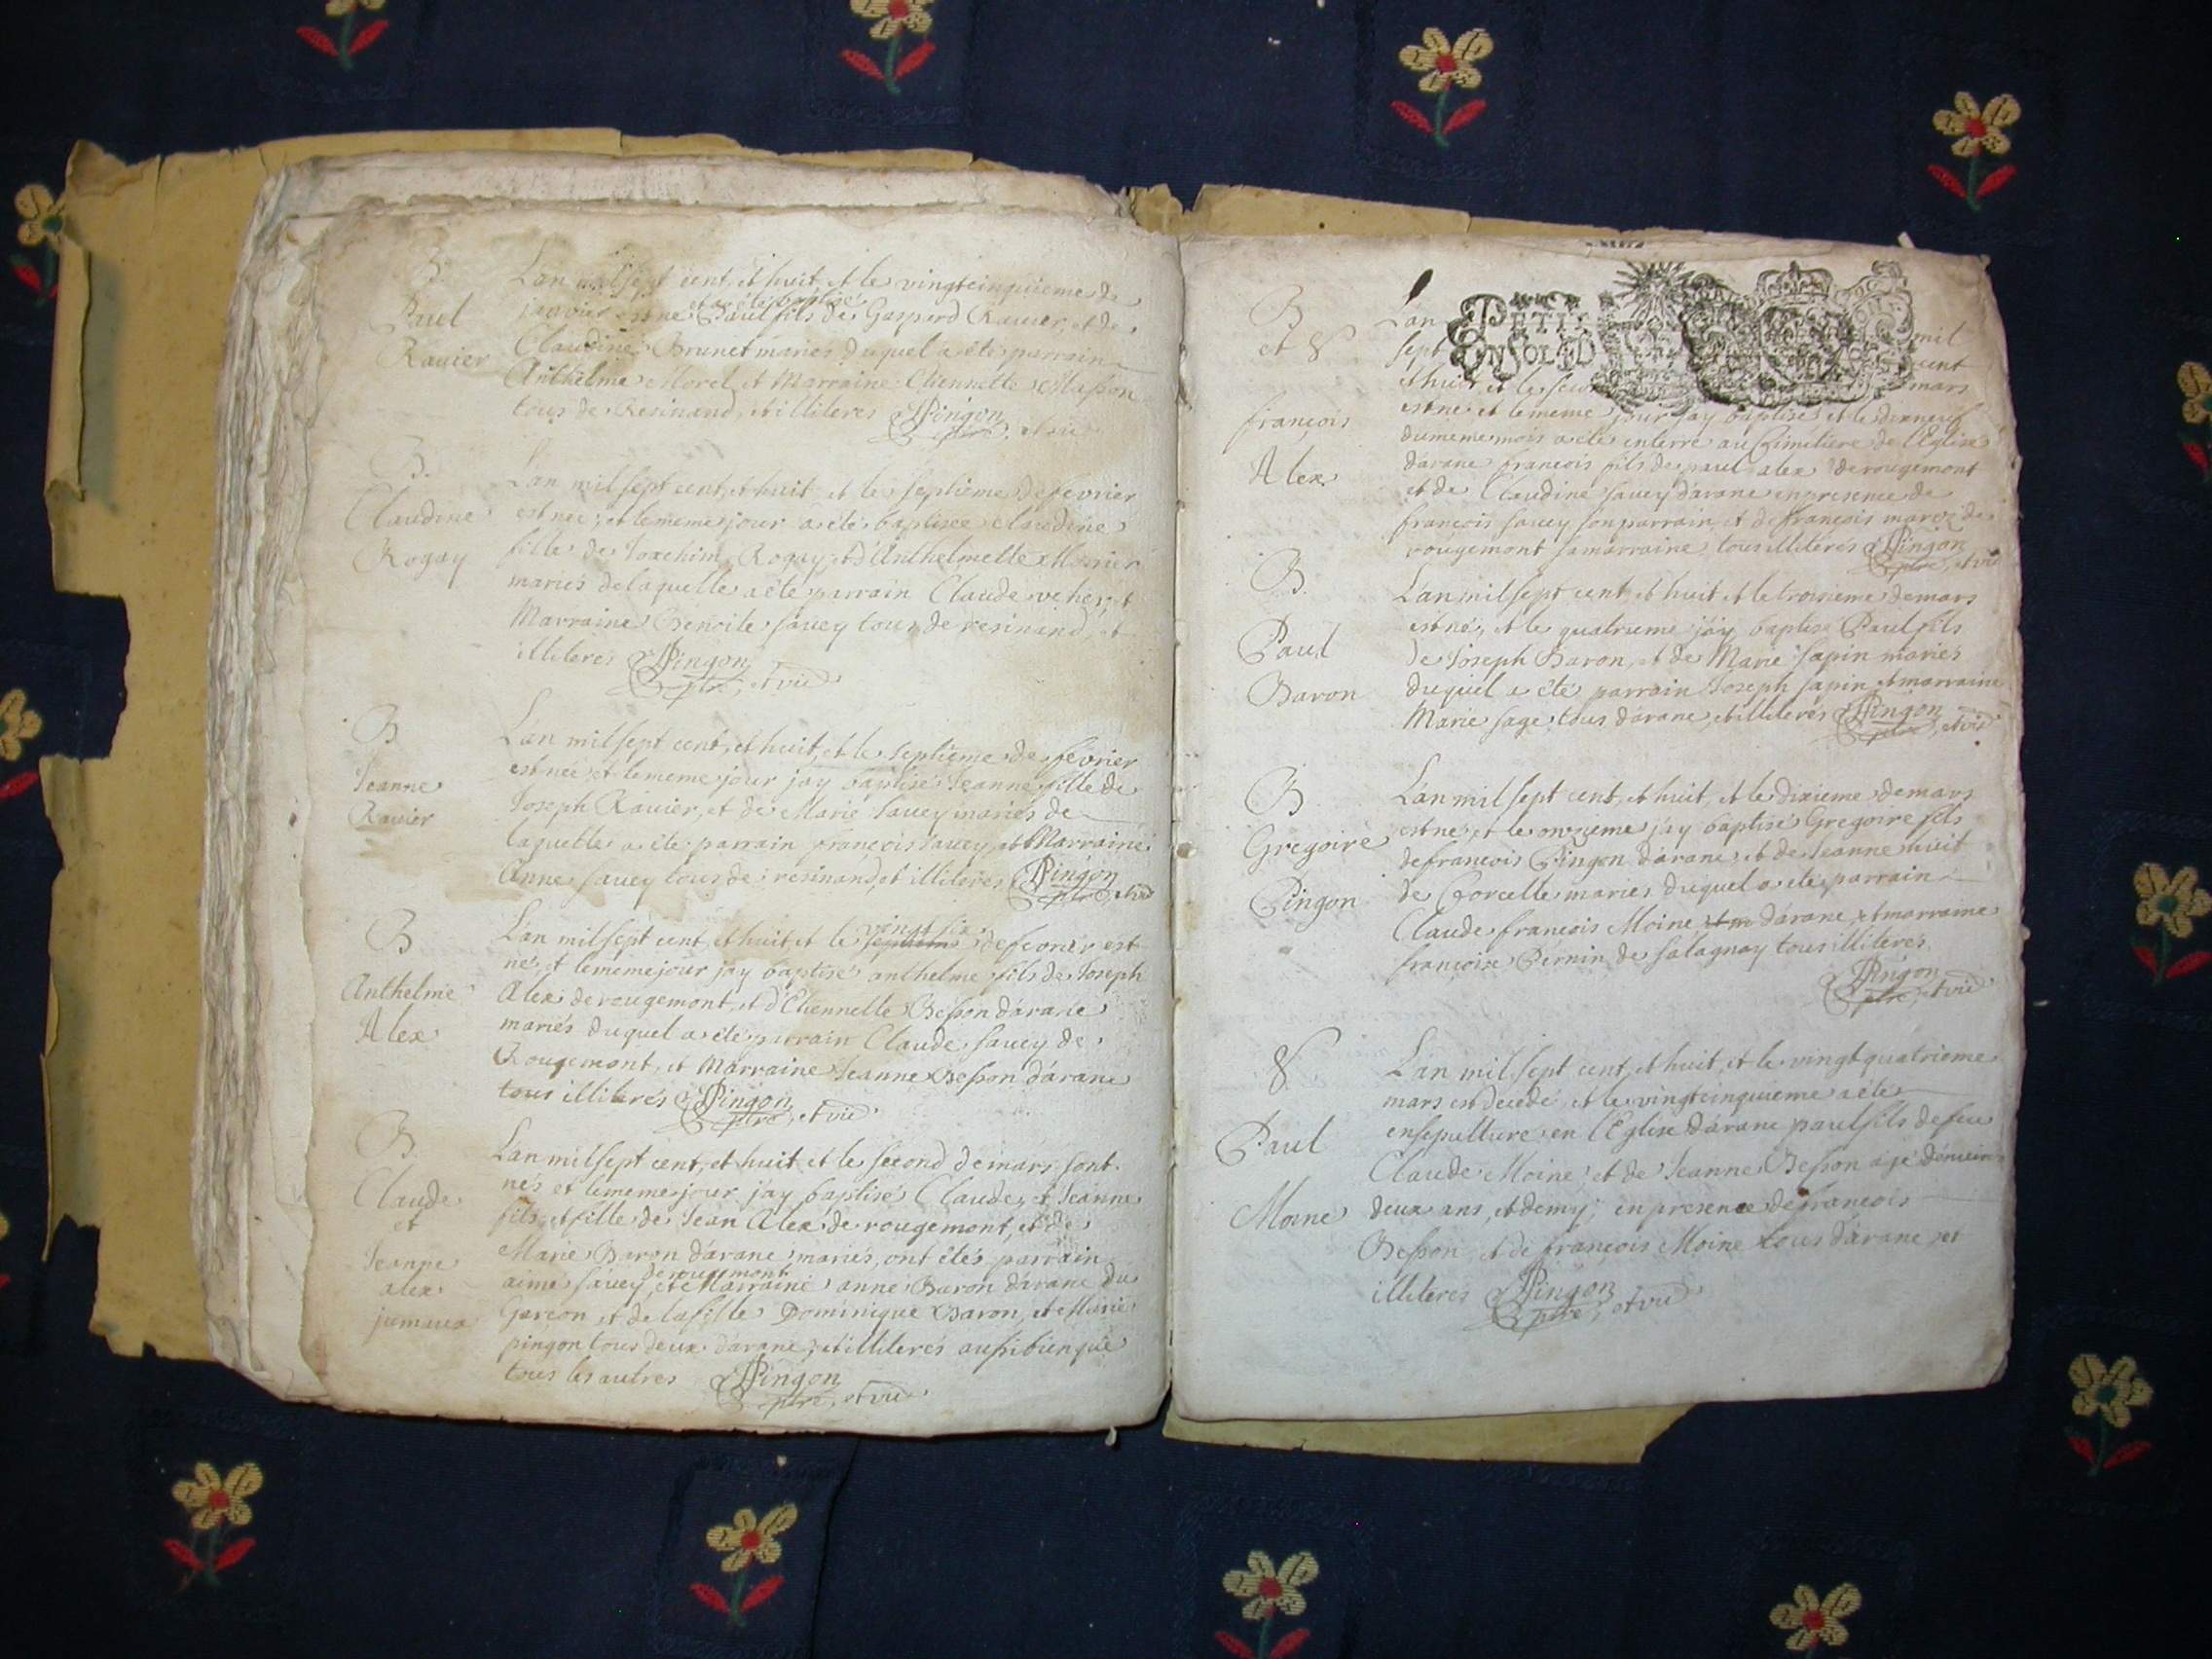 B.
Paul
Ravier
L'an mil sept cent, et huit, et le vingtcinquieme de
janvier est né et a été baptisé Paul fils de Gaspard Ravier, et de
Claudine Brunet mariés duquel a été parrain
Anthelme Morel, et Marraine Etiennette Masson
tous de Resinand, et illiterés Pingon
ptre, et vic
B.
Claudine
Rogay
L'an mil sept cent, et huit et le septième de fevrier
est née, et le meme jour a été baptisée Claudine
fille de Joachim Rogay, et d'Anthelmette
mariés de laquelle a été parrain Claude et
Marraine Benoite savey tous de resinand, et
illiterés Pingon
ptre, et vic
B
Jeanne
Ravier
L'an mil sept cent, et huit, et le septième de février
est née et le meme jour j'ay baptisé Jeanne fille de
Joseph Ravier, et de Marie savey mariés de
laquelle a été parrain françois savey, et Marraine
Anne savey tous de resinand, et illiterés Pingon
ptre, et vic
B
Anthelme
Alex
L'an mil sept cent, et huit et le vingt six de fevrier est
né, et le meme jour j'ay baptisé anthelme fils de Joseph
Alex de rougemont, et d'Etiennette Besson d'arane
mariés duquel a été parrain Claude savey de
Rougemont, et Marraine Jeanne Besson d'arane
tous illiterés Pingon
ptre, et vic
B.
Claude
et
Jeanne
alex
jumeaux
L'an mil sept cent, et huit et le second de mars sont
nés et le meme jour j'ay baptisé Claude, et Jeanne
fils, et fille de Jean Alex de rougemont, et de
Marie Baron d'arane mariés, ont étés parrain
aimé savey de rougemont, et Marraine anne Baron d'arane du
garçon, et de la fille Dominique Baron, et Marie
pingon tous deux d'arane, et illiterés aussi bien que
tous les autres Pingon
ptre, et vic
B
et S
françois
Alex
PETIT
EN SOLED
L'an mil
sept cent
et huit et le mars
est né et le meme jour j'ay baptisé et le dixneuf
du meme mois a été enterré au Cimetiere de l'Eglise
d'arane françois fils de paul alex de rougemont
et de Claudine savey d'arane en presence de
françois savey son parrain, et de de
rougemont sa marraine, tous illiterés Pingon
ptre, et vic
B.
Paul
Baron
L'an mil sept cent, et huit et le troisieme de mars
est né, et le quatrieme j'ay baptisé Paul fils
de Joseph Baron, et de Marie sapin mariés
duquel a été parrain Joseph sapin et marraine
Marie sage, tous d'arane, et illiterés Pingon
ptre, et vic
B
Gregoire
Pingon
L'an mil sept cent, et huit, et le dixieme de mars
est né, et le onzieme j'ay baptisé Gregoire fils
de françois Pingon d'arane, et de Jeanne huit
de Corcelle mariés duquel a été parrain
Claude françois Moine d'arane, et marraine
françoise Pernin de salagnay tous illiterés.
Pingon
ptre, et vic
S
Paul
Moine
L'an mil sept cent, et huit, et le vingt quatrieme
mars est decedé et le vingtcinquieme a été
ensepulturé en l'Eglise d'arane paul fils de feu
Claude Moine et de Jeanne Besson agé d'environ
deux ans, et demy, en presence de françois
Besson, et de françois Moine tous d'arane et
illiterés Pingon
ptre, et vic